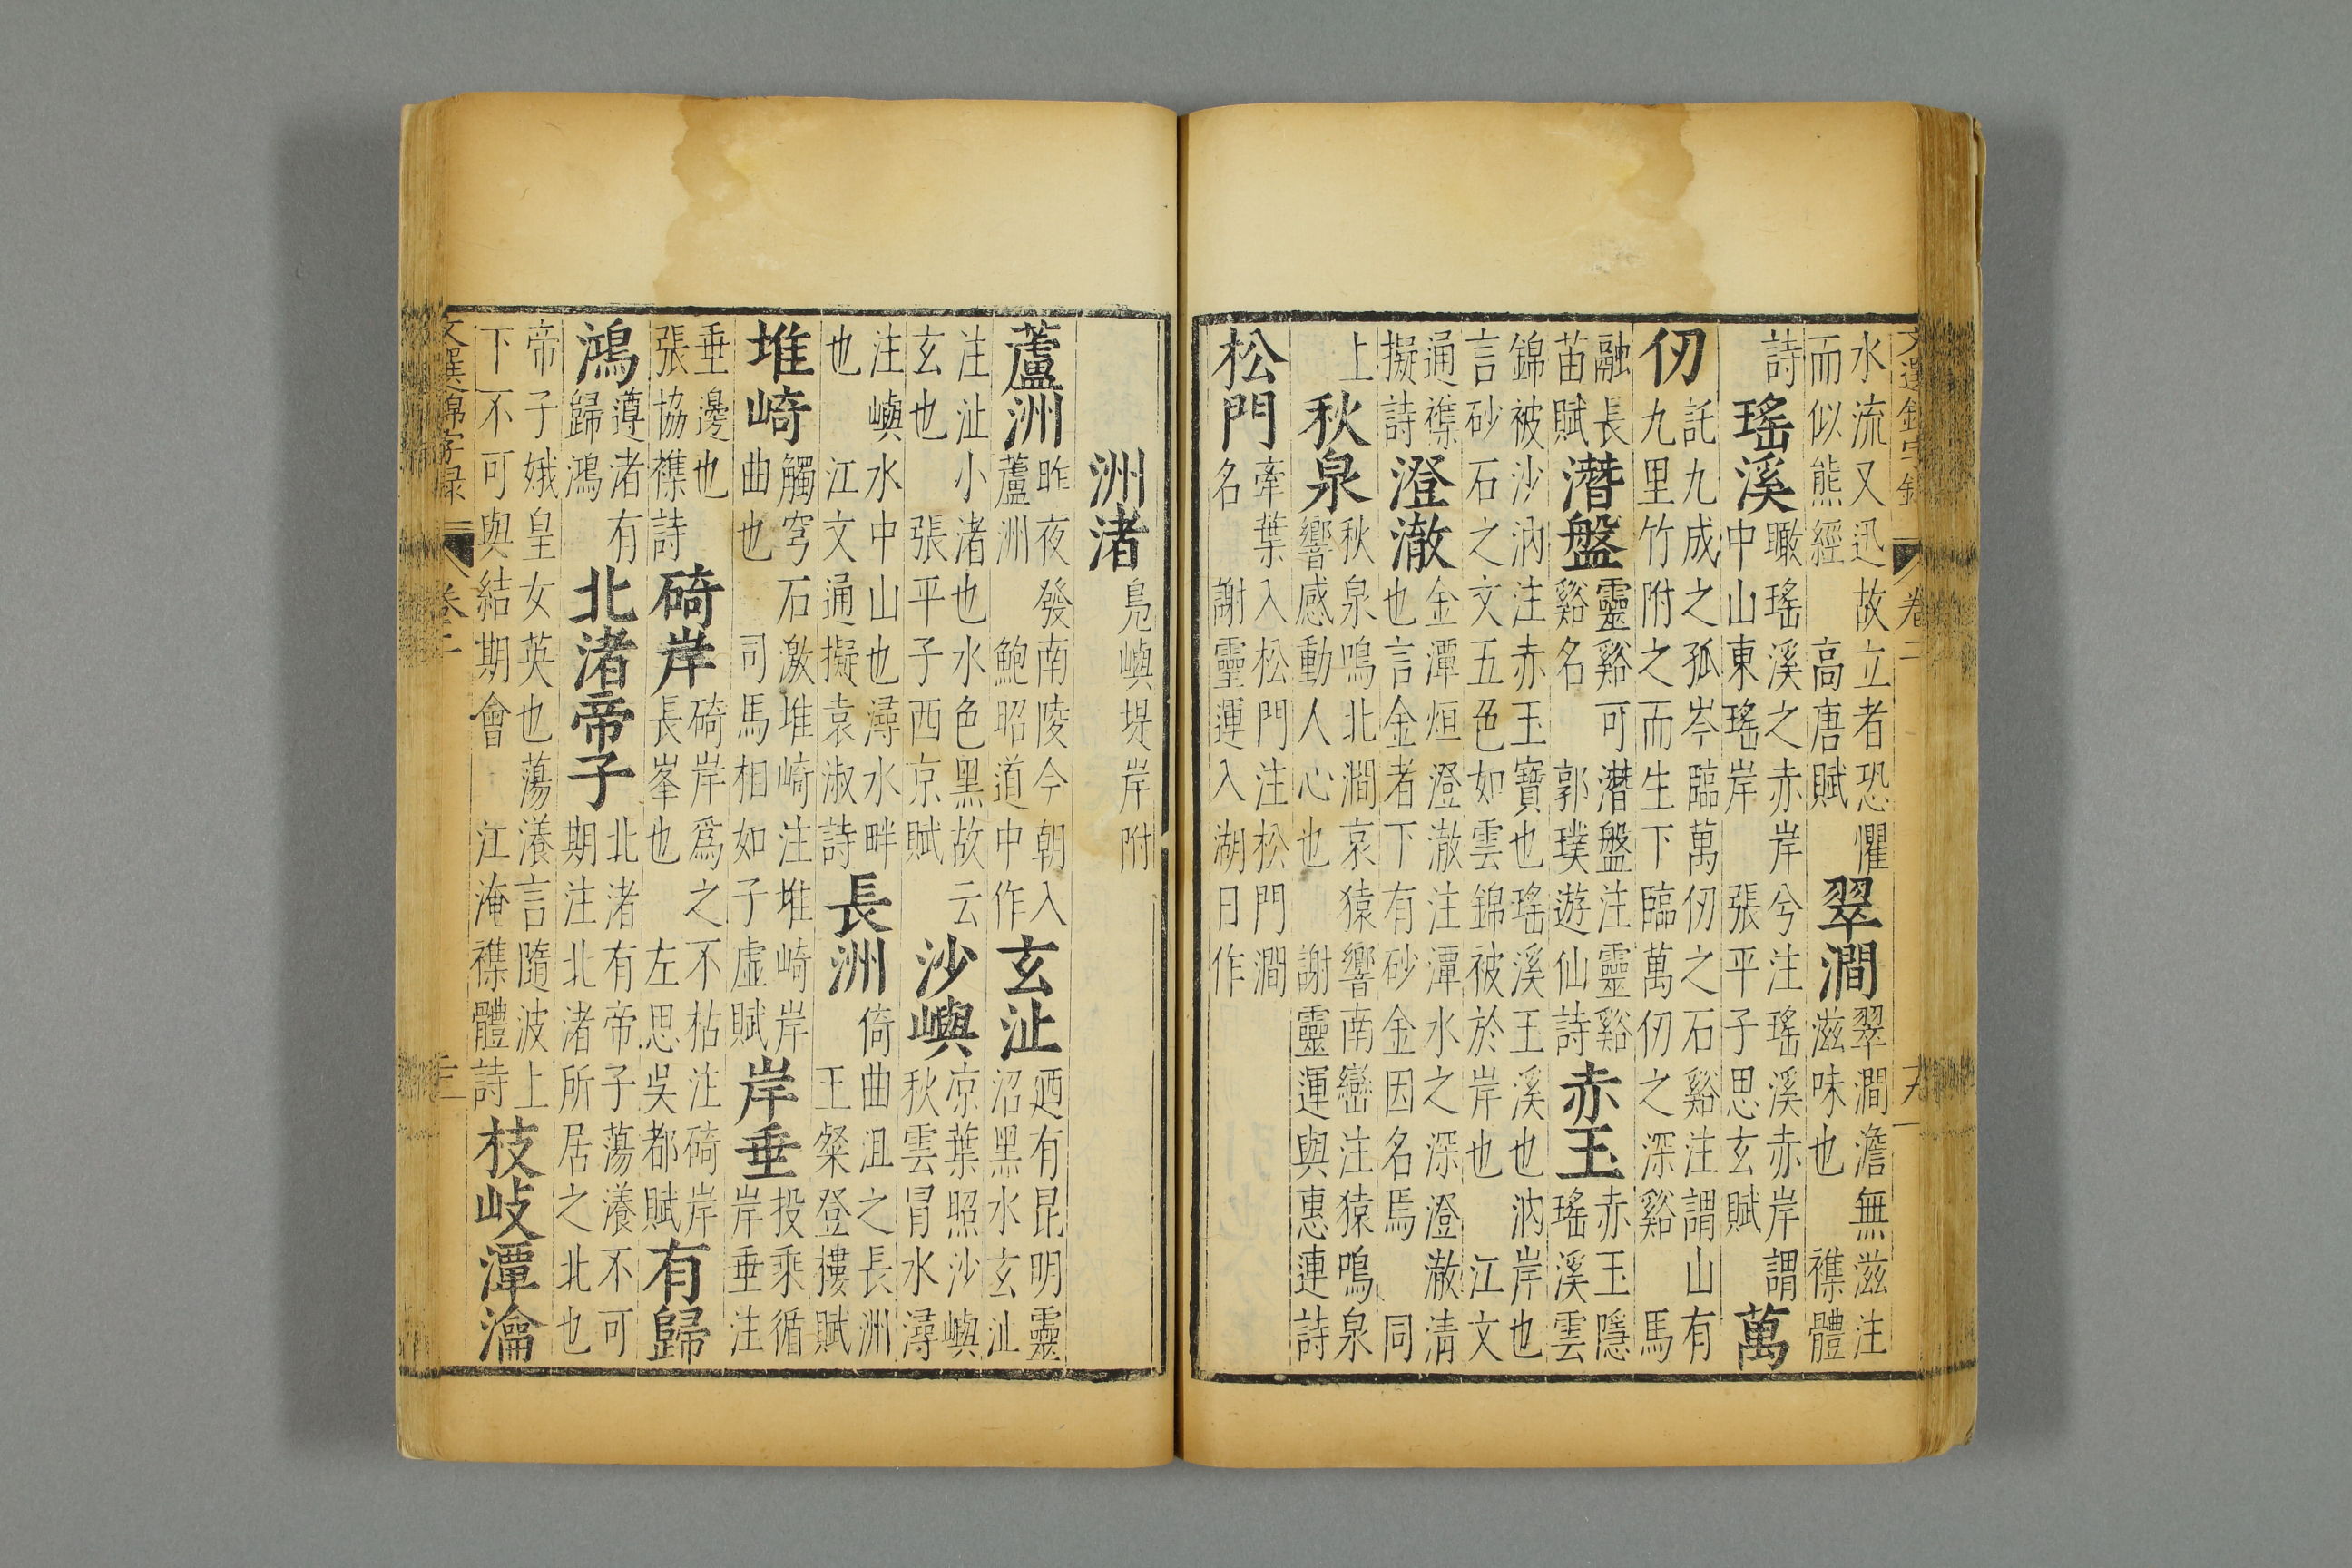 文選錦字錄 卷二
水流又迅故立者恐懼而似熊經 高唐賦 翠澗 翠澗澹無滋注滋味也 襍體
詩 瑤溪 瞰瑤溪之赤岸兮注瑤溪赤岸謂中山東瑤岸 張平子思玄賦 萬
仞 託九成之孤岑臨萬仞之石谿注謂山有九里竹附之而生下臨萬仞之深谿 馬
融長苗賦 潛盤 靈谿可潛盤注靈谿谿名 郭璞遊仙詩 赤玉 赤玉隱瑤溪雲
錦被沙汭注赤玉寶也瑤溪玉溪也汭岸也言砂石之文五色如雲錦被於岸也 江文
通襍擬詩 澄澈 金潭烜澄澈注潭水之深澄澈清也言金者下有砂金因名焉 同
上 秋泉 秋泉鳴北澗哀猿響南巒注猿鳴泉響感動人心也 謝靈運與惠連詩
松門 牽葉入松門注松門澗名 謝靈運入湖日作
洲渚 鳧嶼堤岸附
蘆洲 昨夜發南陵今朝入蘆洲 鮑昭道中作 玄沚 迺有昆明靈沼黑水玄沚
注沚小渚也水色黑故云玄也 張平子西京賦 沙嶼 凉葉照沙嶼秋雲冐水潯
注嶼水中山也潯水畔也 江文通擬袁淑詩 長洲 倚曲沮之長洲王粲登摟賦
堆崎 觸穹石激堆崎注堆崎岸曲也 司馬相如子虛賦 岸垂 投乘循岸垂注
垂邊也張協襍詩 碕岸 碕岸爲之不枯注碕岸長峯也 左思吳都賦 有歸
鴻 遵渚有歸鴻 北渚帝子 北渚有帝子蕩瀁不可期注北渚所居之北也
帝子娥皇女英也蕩瀁言隨波上下不可與結期會 江淹襍體詩 枝岐潭瀹
文選錦字録 卷二